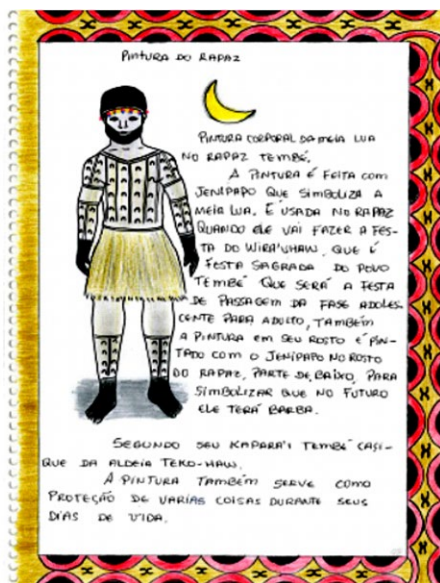 PINTURA DO RAPAZ
PINTURA CORPORAL DA MEIA LUA
NO RAPAZ TEMBÉ.
A PINTURA É FEITA COM
JENIPAPO QUE SIMBOLIZA A
MEIA LUA. É USADA NO RAPAZ
QUANDO ELE VAI FAZER A FES-
TA DO WIRA'UHAW, QUE É
FESTA SAGRADA DO POVO
TEMBÉ QUE SERÁ A FESTA
DE PASSAGEM DA FASE ADOLES-
CENTE PARA ADULTO, TAMBÉM
A PINTURA EM SEU ROSTO É PIN-
TADO COM O JENIPAPO NO ROSTO
DO RAPAZ, PARTE DE BAIXO, PARA
SIMBOLIZAR QUE NO FUTURO
ELE TERÁ BARBA.
SEGUNDO SEU KAPARA'I TEMBÉ CASI-
QUE DA ALDEIA TEKO-HAW.
A PINTURA TAMBÉM SERVE COMO
PROTEÇÃO DE VARIAS COISAS DURANTE SEUS
DIAS DE VIDA.